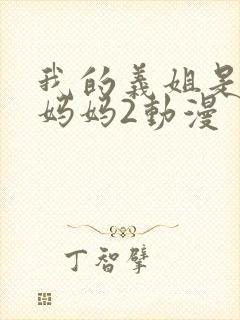 我的義姐是
妈妈2動漫
丁智擘